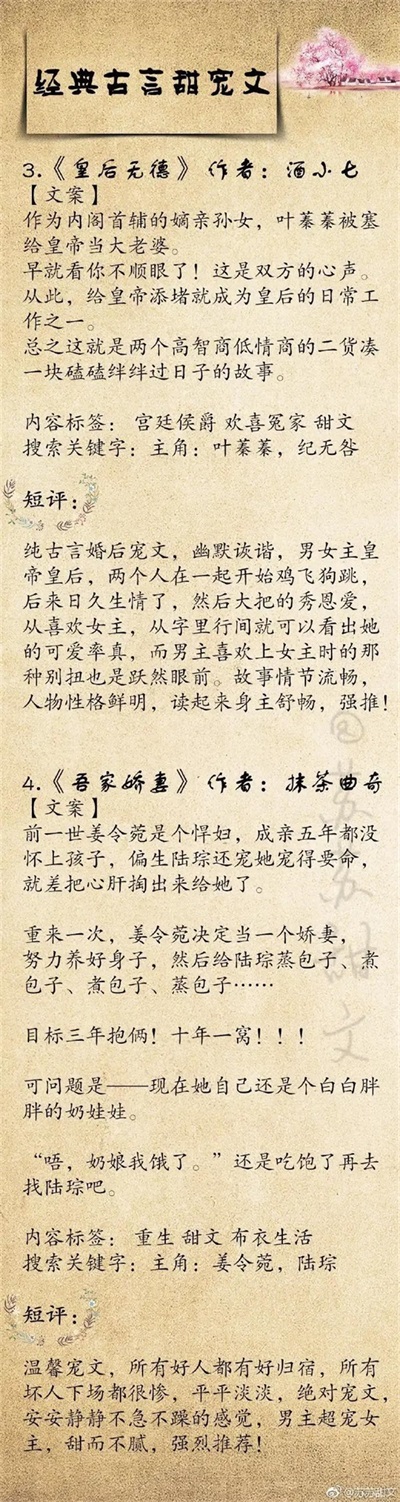 经典古言甜宠文
3.《皇后无德》 作者：酒小七
【文案】
作为内阁首辅的嫡亲孙女，叶蓁蓁被塞
给皇帝当大老婆。
早就看你不顺眼了！这是双方的心声。
从此，给皇帝添堵就成为皇后的日常工
作之一。
总之这就是两个高智商低情商的二货凑
一块磕磕绊绊过日子的故事。
内容标签： 宫廷侯爵 欢喜冤家 甜文
搜索关键字：主角：叶蓁蓁，纪无咎
短评：
纯古言婚后宠文，幽默诙谐，男女主皇
帝皇后，两个人在一起开始鸡飞狗跳，
后来日久生情了，然后大把的秀恩爱，
从喜欢女主，从字里行间就可以看出她
的可爱率真，而男主喜欢上女主时的那
种别扭也是跃然眼前。故事情节流畅，
人物性格鲜明，读起来身主舒畅，强推！
4.《吾家娇妻》 作者：抹茶曲奇
【文案】
前一世姜令菀是个悍妇，成亲五年都没
怀上孩子，偏生陆琮还宠她宠得要命，
就差把心肝掏出来给她了。
重来一次，姜令菀决定当一个娇妻，
努力养好身子，然后给陆琮蒸包子、煮
包子、煮包子、蒸包子……
目标三年抱俩！十年一窝！！！
可问题是——现在她自己还是个白白胖
胖的奶娃娃。
“唔，奶娘我饿了。”还是吃饱了再去
找陆琮吧。
内容标签： 重生 甜文 布衣生活
搜索关键字：主角：姜令菀，陆琮
短评：
温馨宠文，所有好人都有好归宿，所有
坏人下场都很惨，平平淡淡，绝对宠文，
安安静静不急不躁的感觉，男主超宠女
主，甜而不腻，强烈推荐！
@苏苏甜文